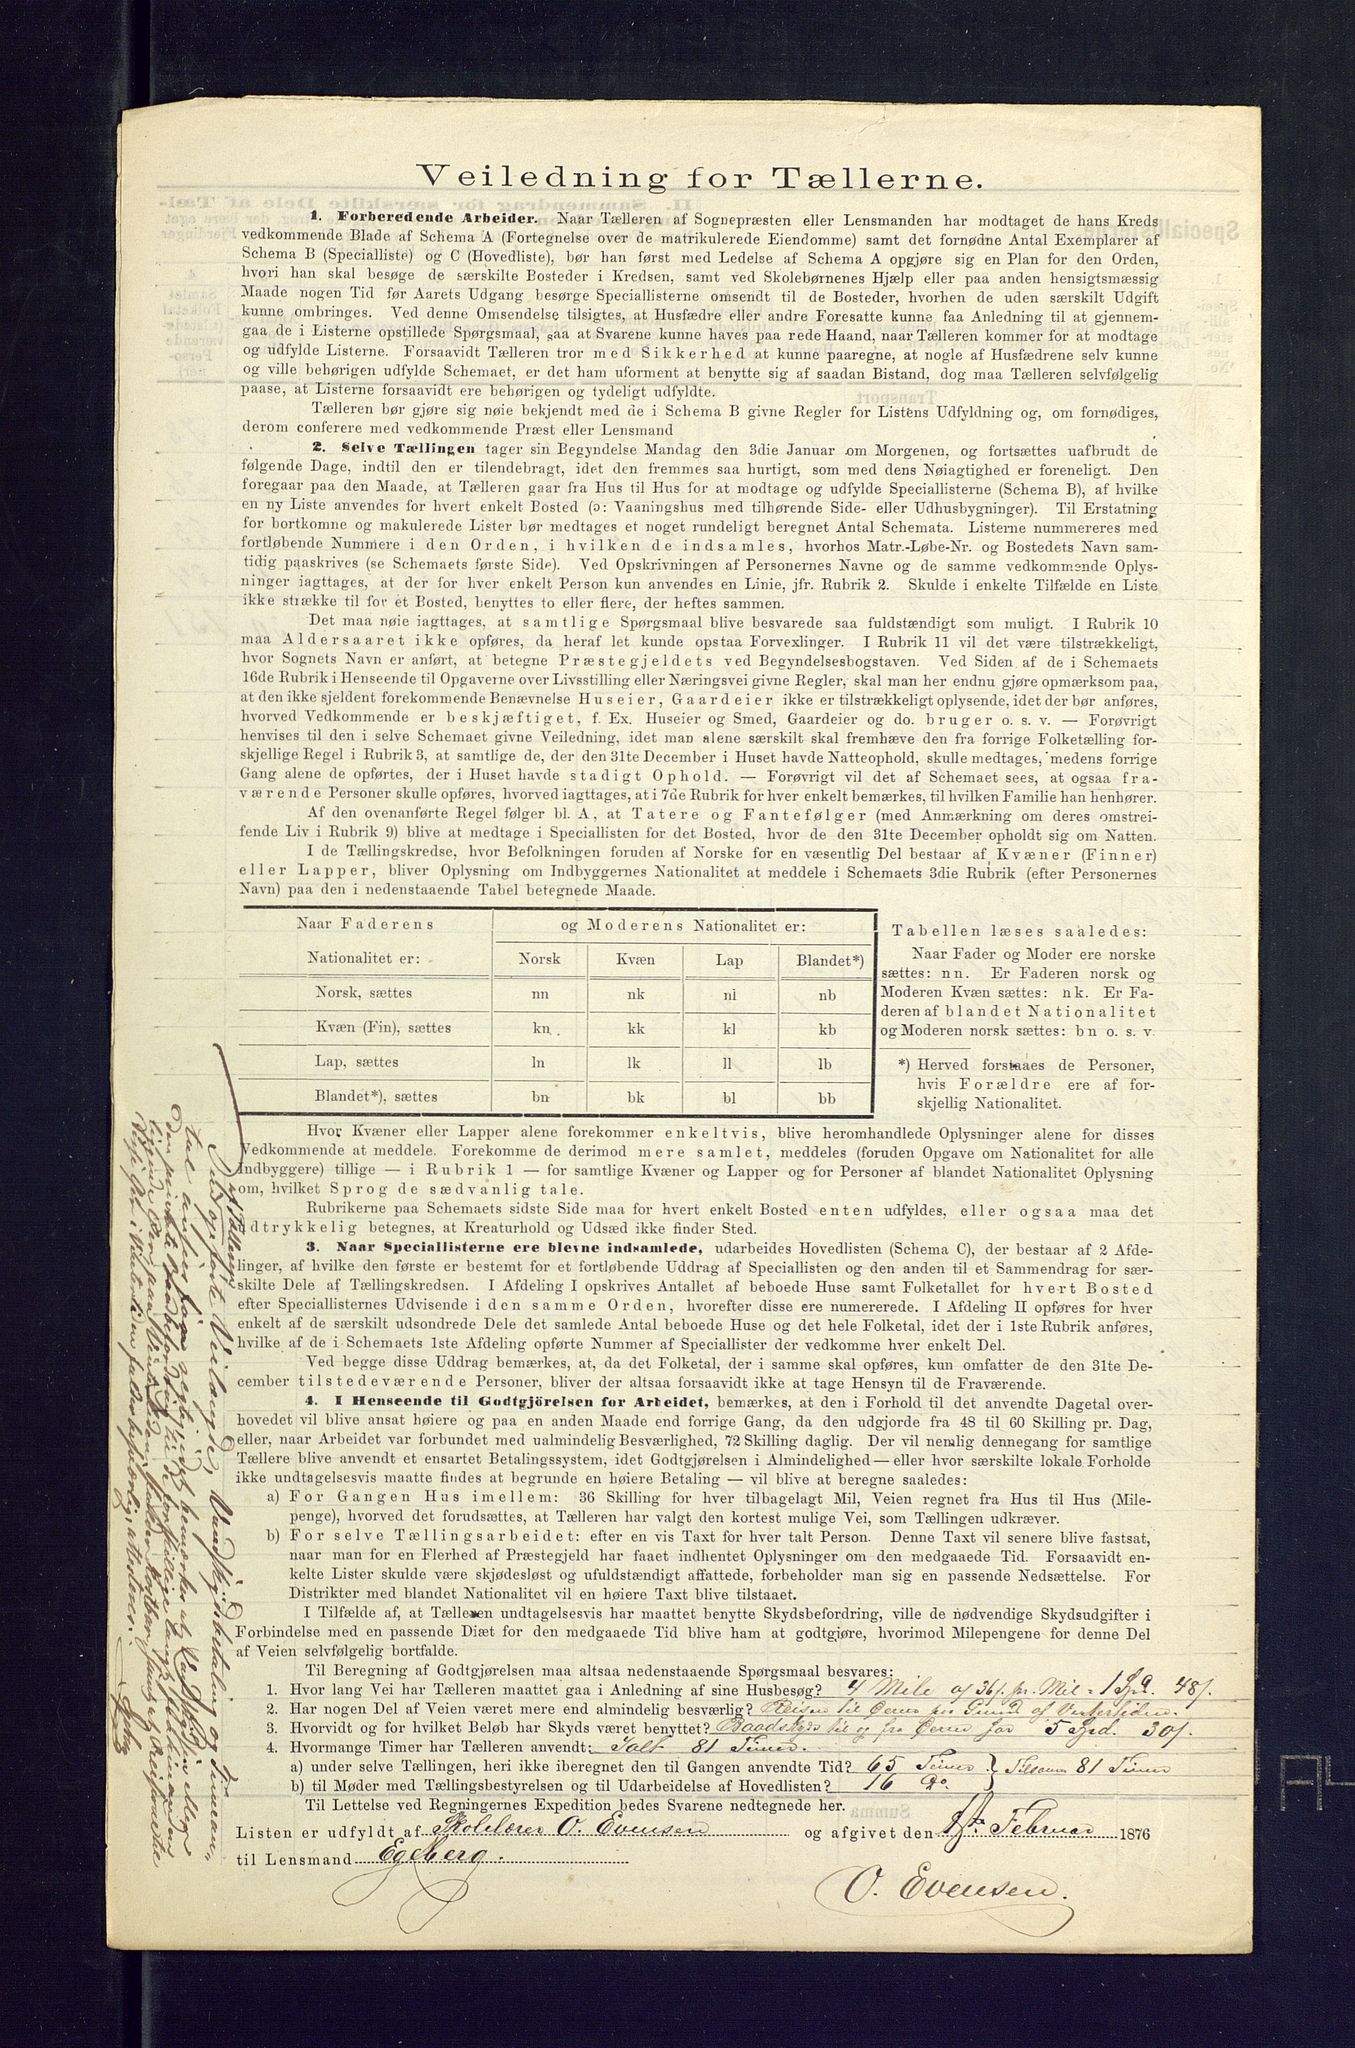 Veiledning for Tællerne.
1. Forberedende Arbeider. Naar Tælleren af Sognepræsten eller Lensmanden har modtaget de hans Kreds
vedkommende Blade af Schema A (Fortegnelse over de matrikulerede Eiendomme) samt det fornødne Antal Exemplarer af
Schema B (Specialliste) og C (Hovedliste), bør han først med Ledelse af Schema A opgjøre sig en Plan for den Orden,
hvori han skal besøge de særskilte Bosteder i Kredsen, samt ved Skolebørnenes Hjælp eller paa anden hensigtsmæssig
Maade nogen Tid før Aarets Udgang besørge Speciallisterne omsendt til de Bosteder, hvorhen de uden særskilt Udgift
kunne ombringes. Ved denne Omsendelse tilsigtes, at Husfædre eller andre Foresatte kunne faa Anledning til at gjennem-
gaa de i Listerne opstillede Spørgsmaal, saa at Svarene kunne haves paa rede Haand, naar Tælleren kommer for at modtage
og udfylde Listerne. Forsaavidt Tælleren tror med Sikkerhed at kunne paaregne, at nogle af Husfædrene selv kunne
og ville behørigen udfylde Schemaet, er det ham uforment at benytte sig af saadan Bistand, dog maa Tælleren selvfølgelig
paase, at Listerne forsaavidt ere behørigen og tydeligt udfyldte.
Tælleren bør gjøre sig nøie bekjendt med de i Schema B givne Regler for Listens Udfyldning og, om fornødiges,
derom conferere med vedkommende Præst eller Lensmand
2. Selve Tællingen tager sin Begyndelse Mandag den 3die Januar om Morgenen, og fortsættes uafbrudt de
følgende Dage, indtil den er tilendebragt, idet den fremmes saa hurtigt, som med dens Nøiagtighed er foreneligt. Den
foregaar paa den Maade, at Tælleren gaar fra Hus til Hus for at modtage og udfylde Speciallisterne (Schema B), af hvilke
en ny Liste anvendes for hvert enkelt Bosted (ɔ: Vaaningshus med tilhørende Side- eller Udhusbygninger). Til Erstatning
for bortkomne og makulerede Lister bør medtages et noget rundeligt beregnet Antal Schemata. Listerne nummereres med
fortløbende Nummere i den Orden, i hvilken de indsamles, hvorhos Matr.-Løbe-Nr. og Bostedets Navn sam-
tidig paaskrives (se Schemaets første Side). Ved Opskrivningen af Personernes Navne og de samme vedkommende Oplys-
ninger iagttages, at der for hver enkelt Person kun anvendes en Linie, jfr. Rubrik 2. Skulde i enkelte Tilfælde en Liste
ikke strække til for ét Bosted, benyttes to eller flere, der heftes sammen.
Det maa nøie iagttages, at samtlige Spørgsmaal blive besvarede saa fuldstændigt som muligt. I Rubrik 10
maa Aldersaaret ikke opføres, da heraf let kunde opstaa Forvexlinger. I Rubrik 11 vil det være tilstrækkeligt,
hvor Sognets Navn er anført, at betegne Præstegjeldets ved Begyndelsesbogstaven. Ved Siden af de i Schemaets
16de Rubrik i Henseende til Opgaverne over Livsstilling eller Næringsvei givne Regler, skal man her endnu gjøre opmærksom paa,
at den ikke sjeldent forekommende Benævnelse Huseier, Gaardeier ikke er tilstrækkeligt oplysende, idet der bør anføres,
hvorved Vedkommende er beskjæftiget, f. Ex. Huseier og Smed, Gaardeier og do. bruger o. s. v. — Forøvrigt
henvises til den i selve Schemaet givne Veiledning, idet man alene særskilt skal fremhæve den fra forrige Folketælling for-
skjellige Regel i Rubrik 3, at samtlige de, der den 31te December i Huset havde Natteophold, skulle medtages, medens forrige
Gang alene de opførtes, der i Huset havde stadigt Ophold. — Forøvrigt vil det af Schemaet sees, at ogsaa fra-
værende Personer skulle opføres, hvorved iagttages, at i 7de Rubrik for hver enkelt bemærkes, til hvilken Familie han henhører.
Af den ovenanførte Regel følger bl. A, at Tatere og Fantefølger (med Anmærkning om deres omstrei-
fende Liv i Rubrik 9) blive at medtage i Speciallisten for det Bosted, hvor de den 31te December opholdt sig om Natten.
I de Tællingskredse, hvor Befolkningen foruden af Norske for en væsentlig Del bestaar af Kvæner (Finner)
eller Lapper, bliver Oplysning om Indbyggernes Nationalitet at meddele i Schemaets 3die Rubrik (efter Personernes
Navn) paa den i nedenstaaende Tabel betegnede Maade.
Naar Faderens og Moderens Nationalitet er:
Nationalitet er: Norsk Kvæn Lap Blandet*)
Norsk, sættes nn nk nl nb
Kvæn (Fin), sættes kn kk kl kb
Lap, sættes ln lk ll lb
Blandet*), sættes bn bk bl bb
Tabellen læses saaledes:
Naar Fader og Moder ere norske
sættes: nn. Er Faderen norsk og
Moderen Kvæn sættes: nk. Er Fa-
deren af blandet Nationalitet
og Moderen norsk sættes: bn o. s. v.
*) Herved forstaaes de Personer,
hvis Forældre ere af for-
skjellig Nationalitet.
Hvor Kvæner eller Lapper alene forekommer enkeltvis, blive heromhandlede Oplysninger alene for disses
Vedkommende at meddele. Forekomme de derimod mere samlet, meddeles (foruden Opgave om Nationalitet for alle
Indbyggere) tillige — i Rubrik 1 — for samtlige Kvæner og Lapper og for Personer af blandet Nationalitet Oplysning
om, hvilket Sprog de sædvanlig tale.
Rubrikerne paa Schemaets sidste Side maa for hvert enkelt Bosted enten udfyldes, eller ogsaa maa det
udtrykkelig betegnes, at Kreaturhold og Udsæd ikke finder Sted.
3. Naar Speciallisterne ere blevne indsamlede, udarbeides Hovedlisten (Schema C), der bestaar af 2 Afde-
linger, af hvilke den første er bestemt for et fortløbende Uddrag af Speciallisten og den anden til et Sammendrag for sær-
skilte Dele af Tællingskredsen. I Afdeling I opskrives Antallet af beboede Huse samt Folketallet for hvert Bosted
efter Speciallisternes Udvisende i den samme Orden, hvorefter disse ere numererede. I Afdeling II opføres for hver
enkelt af de særskilt udsondrede Dele det samlede Antal beboede Huse og det hele Folketal, idet der i 1ste Rubrik anføres,
hvilke af de i Schemaets 1ste Afdeling opførte Nummer af Speciallister der vedkomme hver enkelt Del.
Ved begge disse Uddrag bemærkes, at det Folketal, der i samme skal opføres, kun omfatter de den 31te De-
cember tilstedeværende Personer, bliver der altsaa forsaavidt ikke at tage Hensyn til de Fraværende.
4. I Henseende til Godtgjörelsen for Arbeidet, bemærkes, at den i Forhold til det anvendte Dagetal over-
hovedet vil blive ansat høiere og paa en anden Maade end forrige Gang, da den udgjorde fra 48 til 60 Skilling pr. Dag,
eller, naar Arbeidet var forbundet med ualmindelig Besværlighed, 72 Skilling daglig. Der vil nemlig dennegang for samtlige
Tællere blive anvendt et ensartet Betalingssystem, idet Godtgjørelsen i Almindelighed — eller hvor særskilte lokale Forholde
ikke undtagelsesvis maatte findes at begrunde en høiere Betaling — vil blive at beregne saaledes:
a) For Gangen Hus imellem: 36 Skilling for hver tilbagelagt Mil, Veien regnet fra Hus til Hus (Mile-
penge), hvorved det forudsættes, at Tælleren har valgt den kortest mulige Vei, som Tællingen udkræver.
b) For selve Tællingsarbeidet: efter en vis Taxt for hver talt Person. Denne Taxt vil senere blive fastsat,
naar man for en Flerhed af Præstegjeld har faaet indhentet Oplysninger om den medgaaede Tid. Forsaavidt en-
kelte Lister skulde være skjødesløst og ufuldstændigt affattede, forbeholder man sig en passende Nedsættelse. For
Distrikter med blandet Nationalitet vil en høiere Taxt blive tilstaaet.
I Tilfælde af, at Tælleren undtagelsesvis har maattet benytte Skydsbefordring, ville de nødvendige Skydsudgifter i
Forbindelse med en passende Diæt for den medgaaede Tid blive ham at godtgjøre, hvorimod Milepengene for denne Del
af Veien selvfølgelig bortfalde.
Til Beregning af Godtgjørelsen maa altsaa nedenstaaende Spørgsmaal besvares:
1. Hvor lang Vei har Tælleren maattet gaa i Anledning af sine Husbesøg? 4 Mile af 36 s. pr. Mil = 1 Spd. 48 s.
2. Har nogen Del af Veien været mere end almindelig besværlig? Reisen til
3. Hvorvidt og for hvilket Beløb har Skyds været benyttet? Baadskyds til og fra for 5 Spd. 30 s.
4. Hvormange Timer har Tælleren anvendt: Ialt 81 Timer.
a) under selve Tællingen, heri ikke iberegnet den til Gangen anvendte Tid? 65 Timer } Tilsamm 81 Timer
b) til Møder med Tællingsbestyrelsen og til Udarbeidelse af Hovedlisten? 16 Do.
Til Lettelse ved Regningernes Expedition bedes Svarene nedtegnede her.
Listen er udfyldt af Skolelærer O. Evensen og afgivet den 1ste Februar 1876
til Lensmand Egeberg.
O. Evensen.
af Tælleren